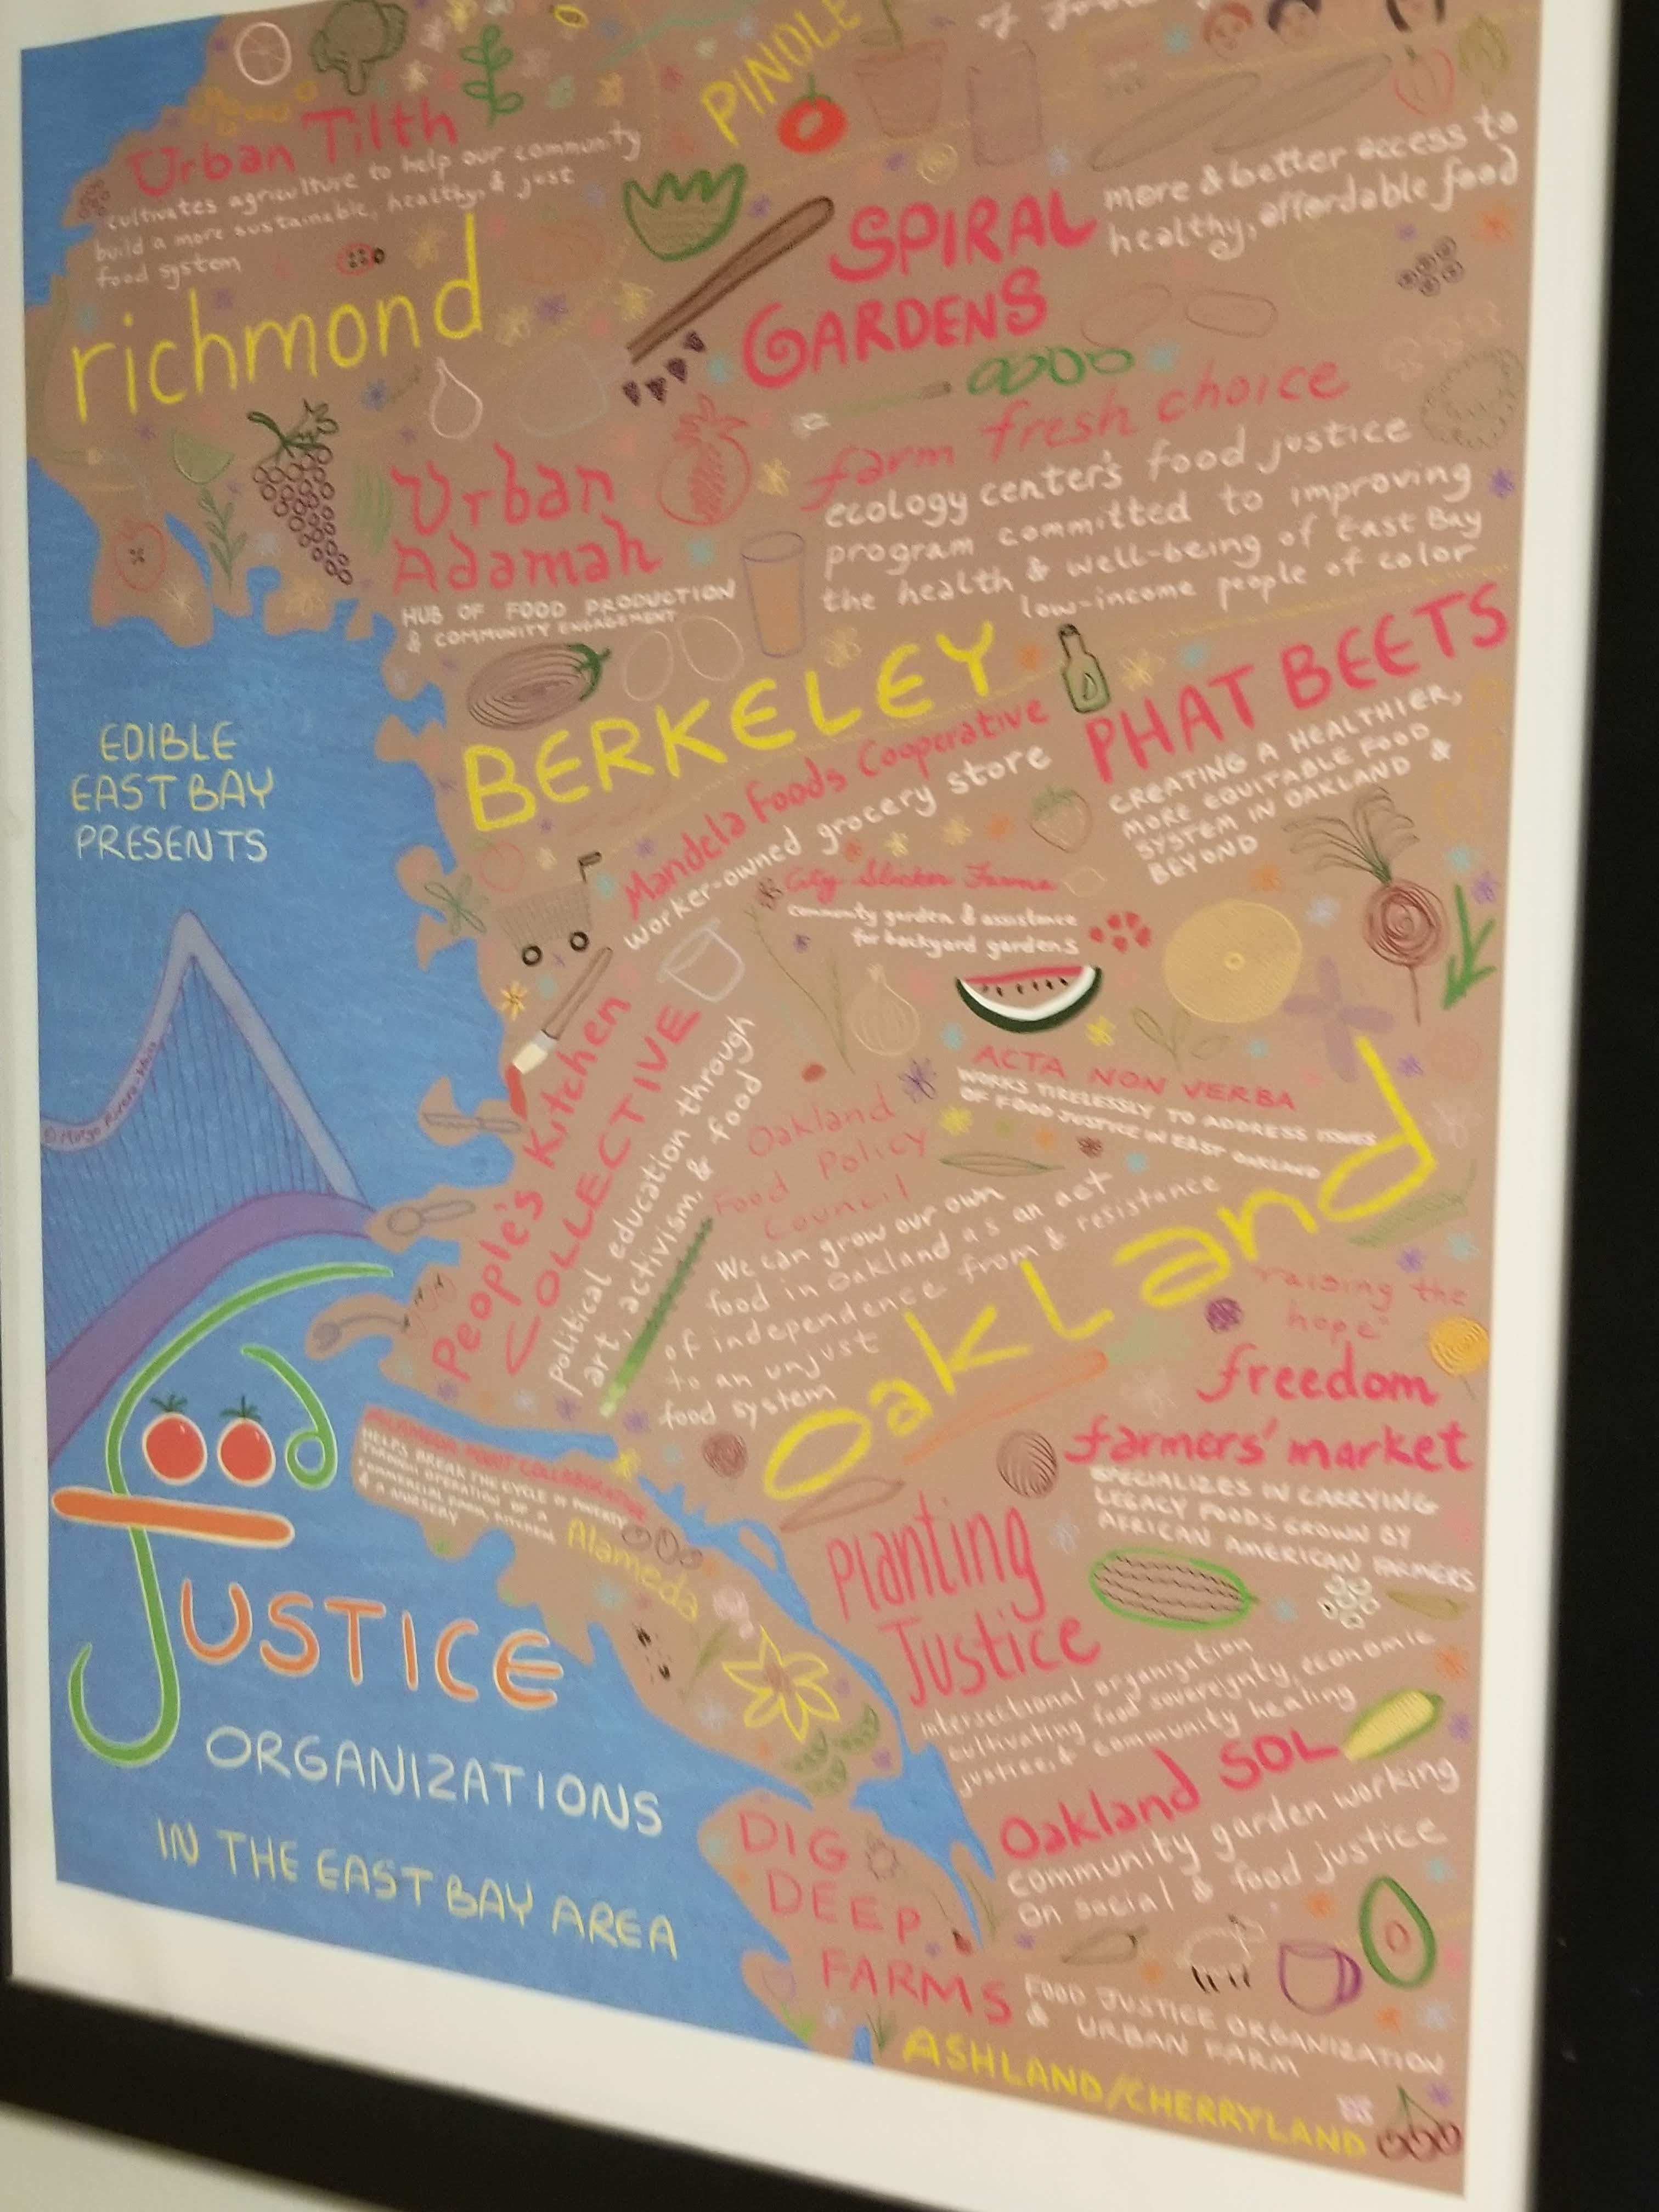 PINOLE
Urban Tilth
cultivates agriculture to help our community
build a more sustainable, healthy, & just
food system
richmond
SPIRAL
GARDENS
more & better access to
healthy, affordable food
farm fresh choice
ecology center's food justice
program committed to improving
the health & well-being of East Bay
low-income people of color
Urban
Adamah
HUB OF FOOD PRODUCTION
& COMMUNITY ENGAGEMENT
BERKELEY
EDIBLE
EAST BAY
PRESENTS
PHAT BEETS
CREATING A HEALTHIER,
MORE EQUITABLE FOOD
SYSTEM IN OAKLAND &
BEYOND
Mandela Foods Cooperative
worker-owned grocery store
City Slicker Farms
community garden & assistance
for backyard gardens
People's Kitchen
COLLECTIVE
Political education through
art, activism, & food
ACTA NON VERBA
WORKS TIRELESSLY TO ADDRESS ISSUES
OF FOOD JUSTICE IN EAST OAKLAND
Oakland
Food Policy
Council
We can grow our own
food in Oakland as an act
of independence from & resistance
to an unjust
food system
OakLand
"raising the
hope"
freedom
farmers' market
SPECIALIZES IN CARRYING
LEGACY FOODS GROWN BY
AFRICAN AMERICAN FARMERS
POINT COLLABORATIVE
HELPS BREAK THE CYCLE OF POVERTY
THROUGH OPERATION OF A
COMMERCIAL FARM, KITCHEN
& A NURSERY
Alameda
Planting
Justice
intersectional organization
cultivating food sovereignty, economic
justice, & community healing
Oakland SOL
community garden working
on social & food justice
DIG
DEEP
FARMS
FOOD JUSTICE ORGANIZATION
& URBAN FARM
ASHLAND/CHERRYLAND
food
JUSTICE
ORGANIZATIONS
IN THE EAST BAY AREA